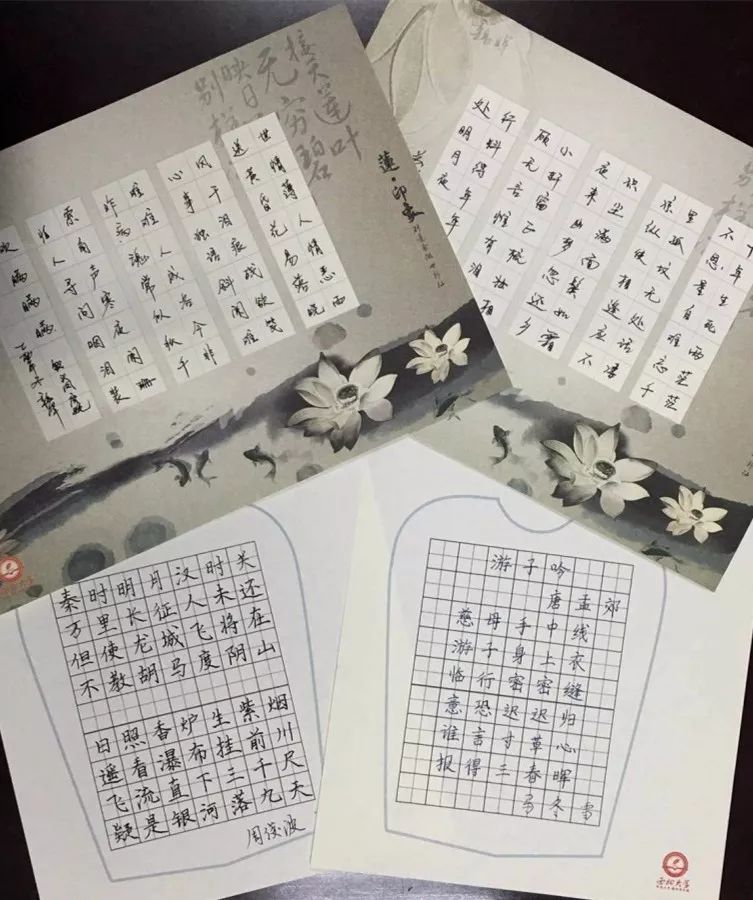 接天莲叶
无穷碧
映日
别样
莲·印象
世情薄人情恶雨
送黄昏花易落晓
风干泪痕残欲笺
心事独语斜阑难
难难人成各今非
昨病魂常似秋千
索角声寒夜阑珊
怕人寻问咽泪装
欢瞒瞒瞒
年生死两茫茫
不思量自难忘千
里孤坟无处话凄
凉纵使相逢应不
识尘满面鬓如霜
夜来幽梦忽还乡
小轩窗正梳妆相
顾无言惟有泪
行料得年年
处明月夜
秦时明月汉时关
万里长征人未还
但使龙城飞将在
不教胡马度阴山
日照香炉生紫烟
遥看瀑布挂前川
飞流直下三千尺
疑是银河落九天
周俊波
游子吟
唐孟郊
慈母手中线
游子身上衣
临行密密缝
意恐迟迟归
谁言寸草心
报得三春晖
马冬雪
西北大学